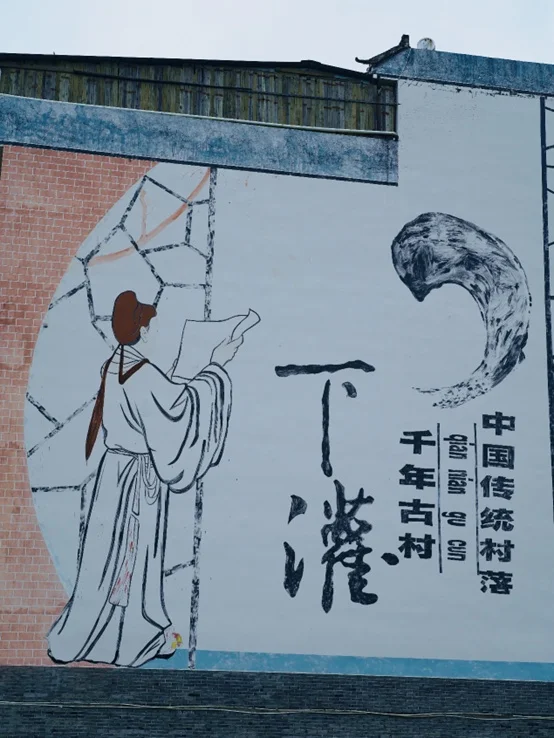 中国传统村落
qian nian gu cun
千年古村
下灌